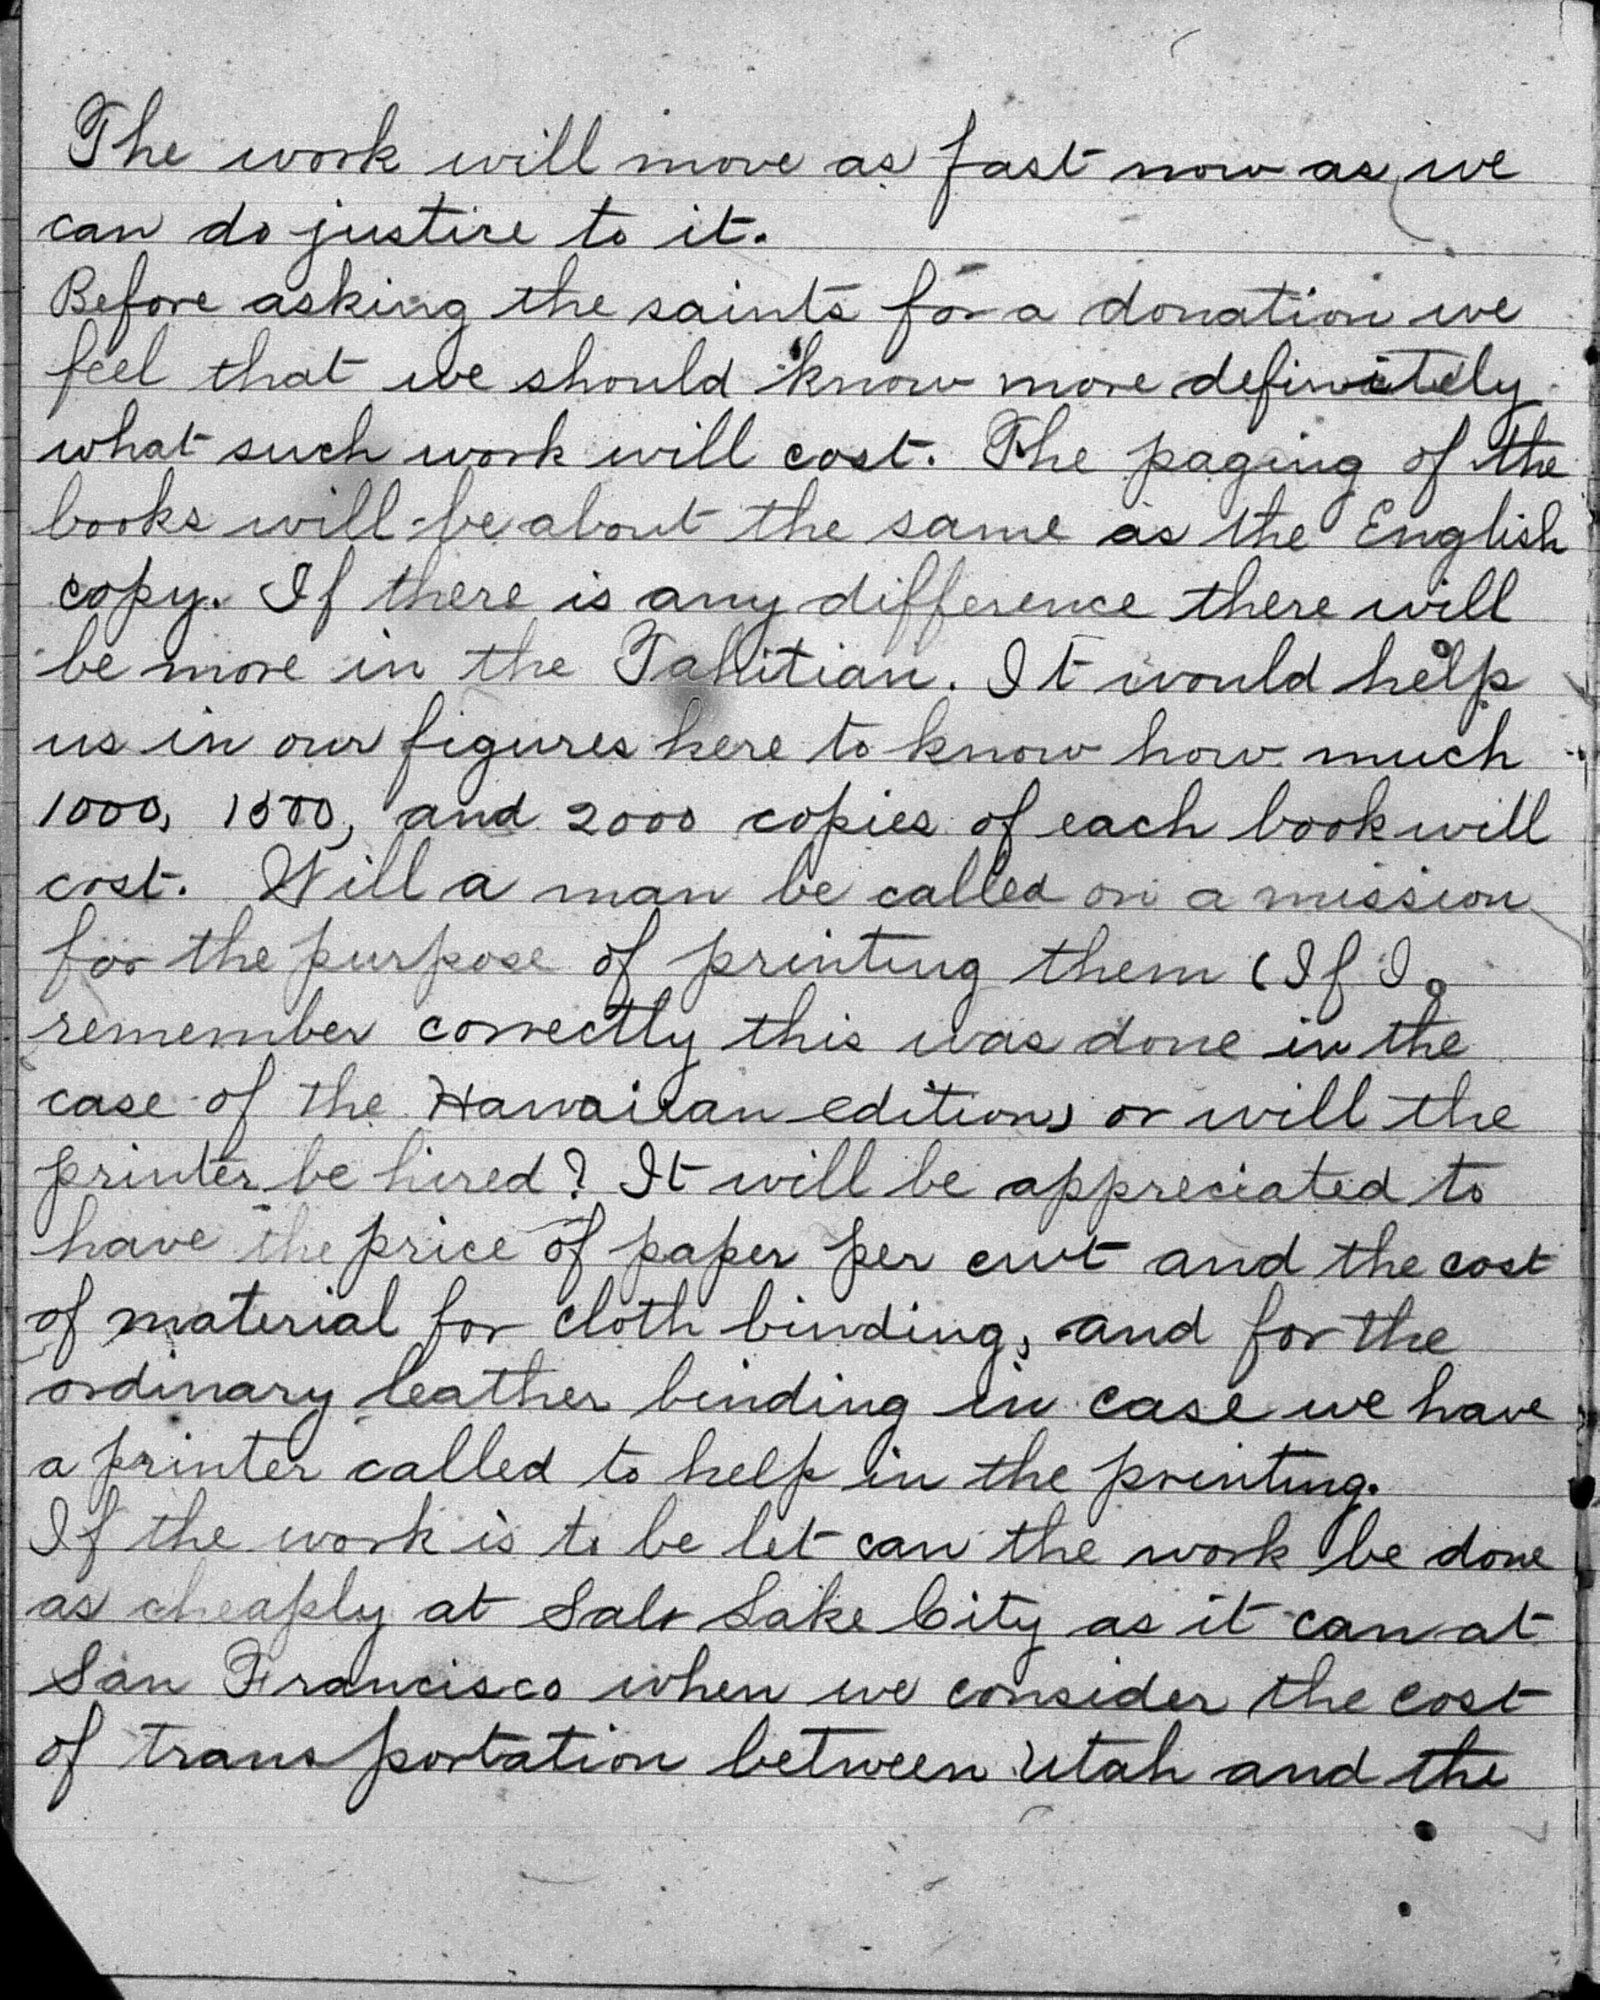 The work will move as fast now as we
can do justice to it.
Before asking the saints for a donation we
feel that we should know more definitely
what such work will cost. The paging of the
books will be about the same as the English
copy. If there is any difference there will
be more in the Tahitian. It would help
us in our figures here to know how much
1000, 1500, and 2000 copies of each book will
cost. Will a man be called on a mission
for the purpose of printing them (If I
remember correctly this was done in the
case of the Hawaiian edition) or will the
printer be hired? It will be appreciated to
have the price of paper per cwt and the cost
of material for cloth binding, and for the
ordinary leather binding in case we have
a printer called to help in the printing.
If the work is to be let can the work be done
as cheaply at Salt Lake City as it can at
San Francisco when we consider the cost
of transportation between Utah and the